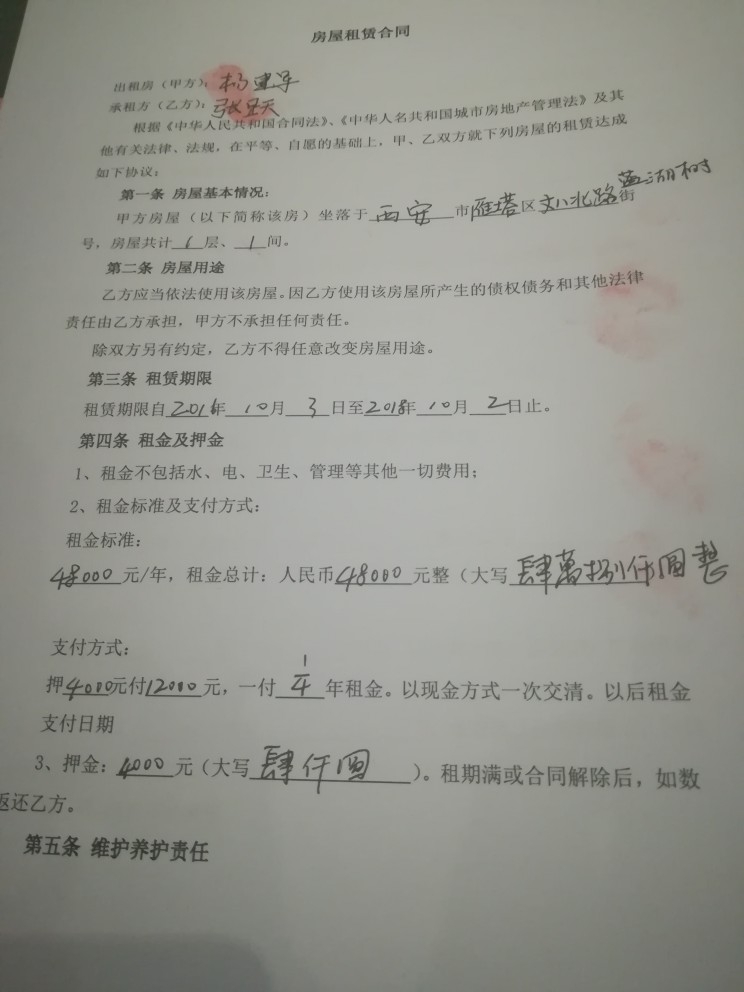 房屋租赁合同
出租房（甲方）：杨建军
承租方（乙方）：张
根据《中华人民共和国合同法》、《中华人名共和国城市房地产管理法》及其
他有关法律、法规，在平等、自愿的基础上，甲、乙双方就下列房屋的租赁达成
如下协议：
第一条 房屋基本情况：
甲方房屋（以下简称该房）坐落于西安市雁塔区文八北路蓝湖树街
号，房屋共计6层、1间。
第二条 房屋用途
乙方应当依法使用该房屋。因乙方使用该房屋所产生的债权债务和其他法律
责任由乙方承担，甲方不承担任何责任。
除双方另有约定，乙方不得任意改变房屋用途。
第三条 租赁期限
租赁期限自年10月3日至2018年10月2日止。
第四条 租金及押金
1、租金不包括水、电、卫生、管理等其他一切费用；
2、租金标准及支付方式：
租金标准：
48000元/年，租金总计：人民币48000元整（大写肆萬捌仟圆整
支付方式：
押4000元付12000元，一付1/4年租金。以现金方式一次交清。以后租金
支付日期
3、押金：4000元（大写肆仟圆）。租期满或合同解除后，如数
返还乙方。
第五条 维护养护责任